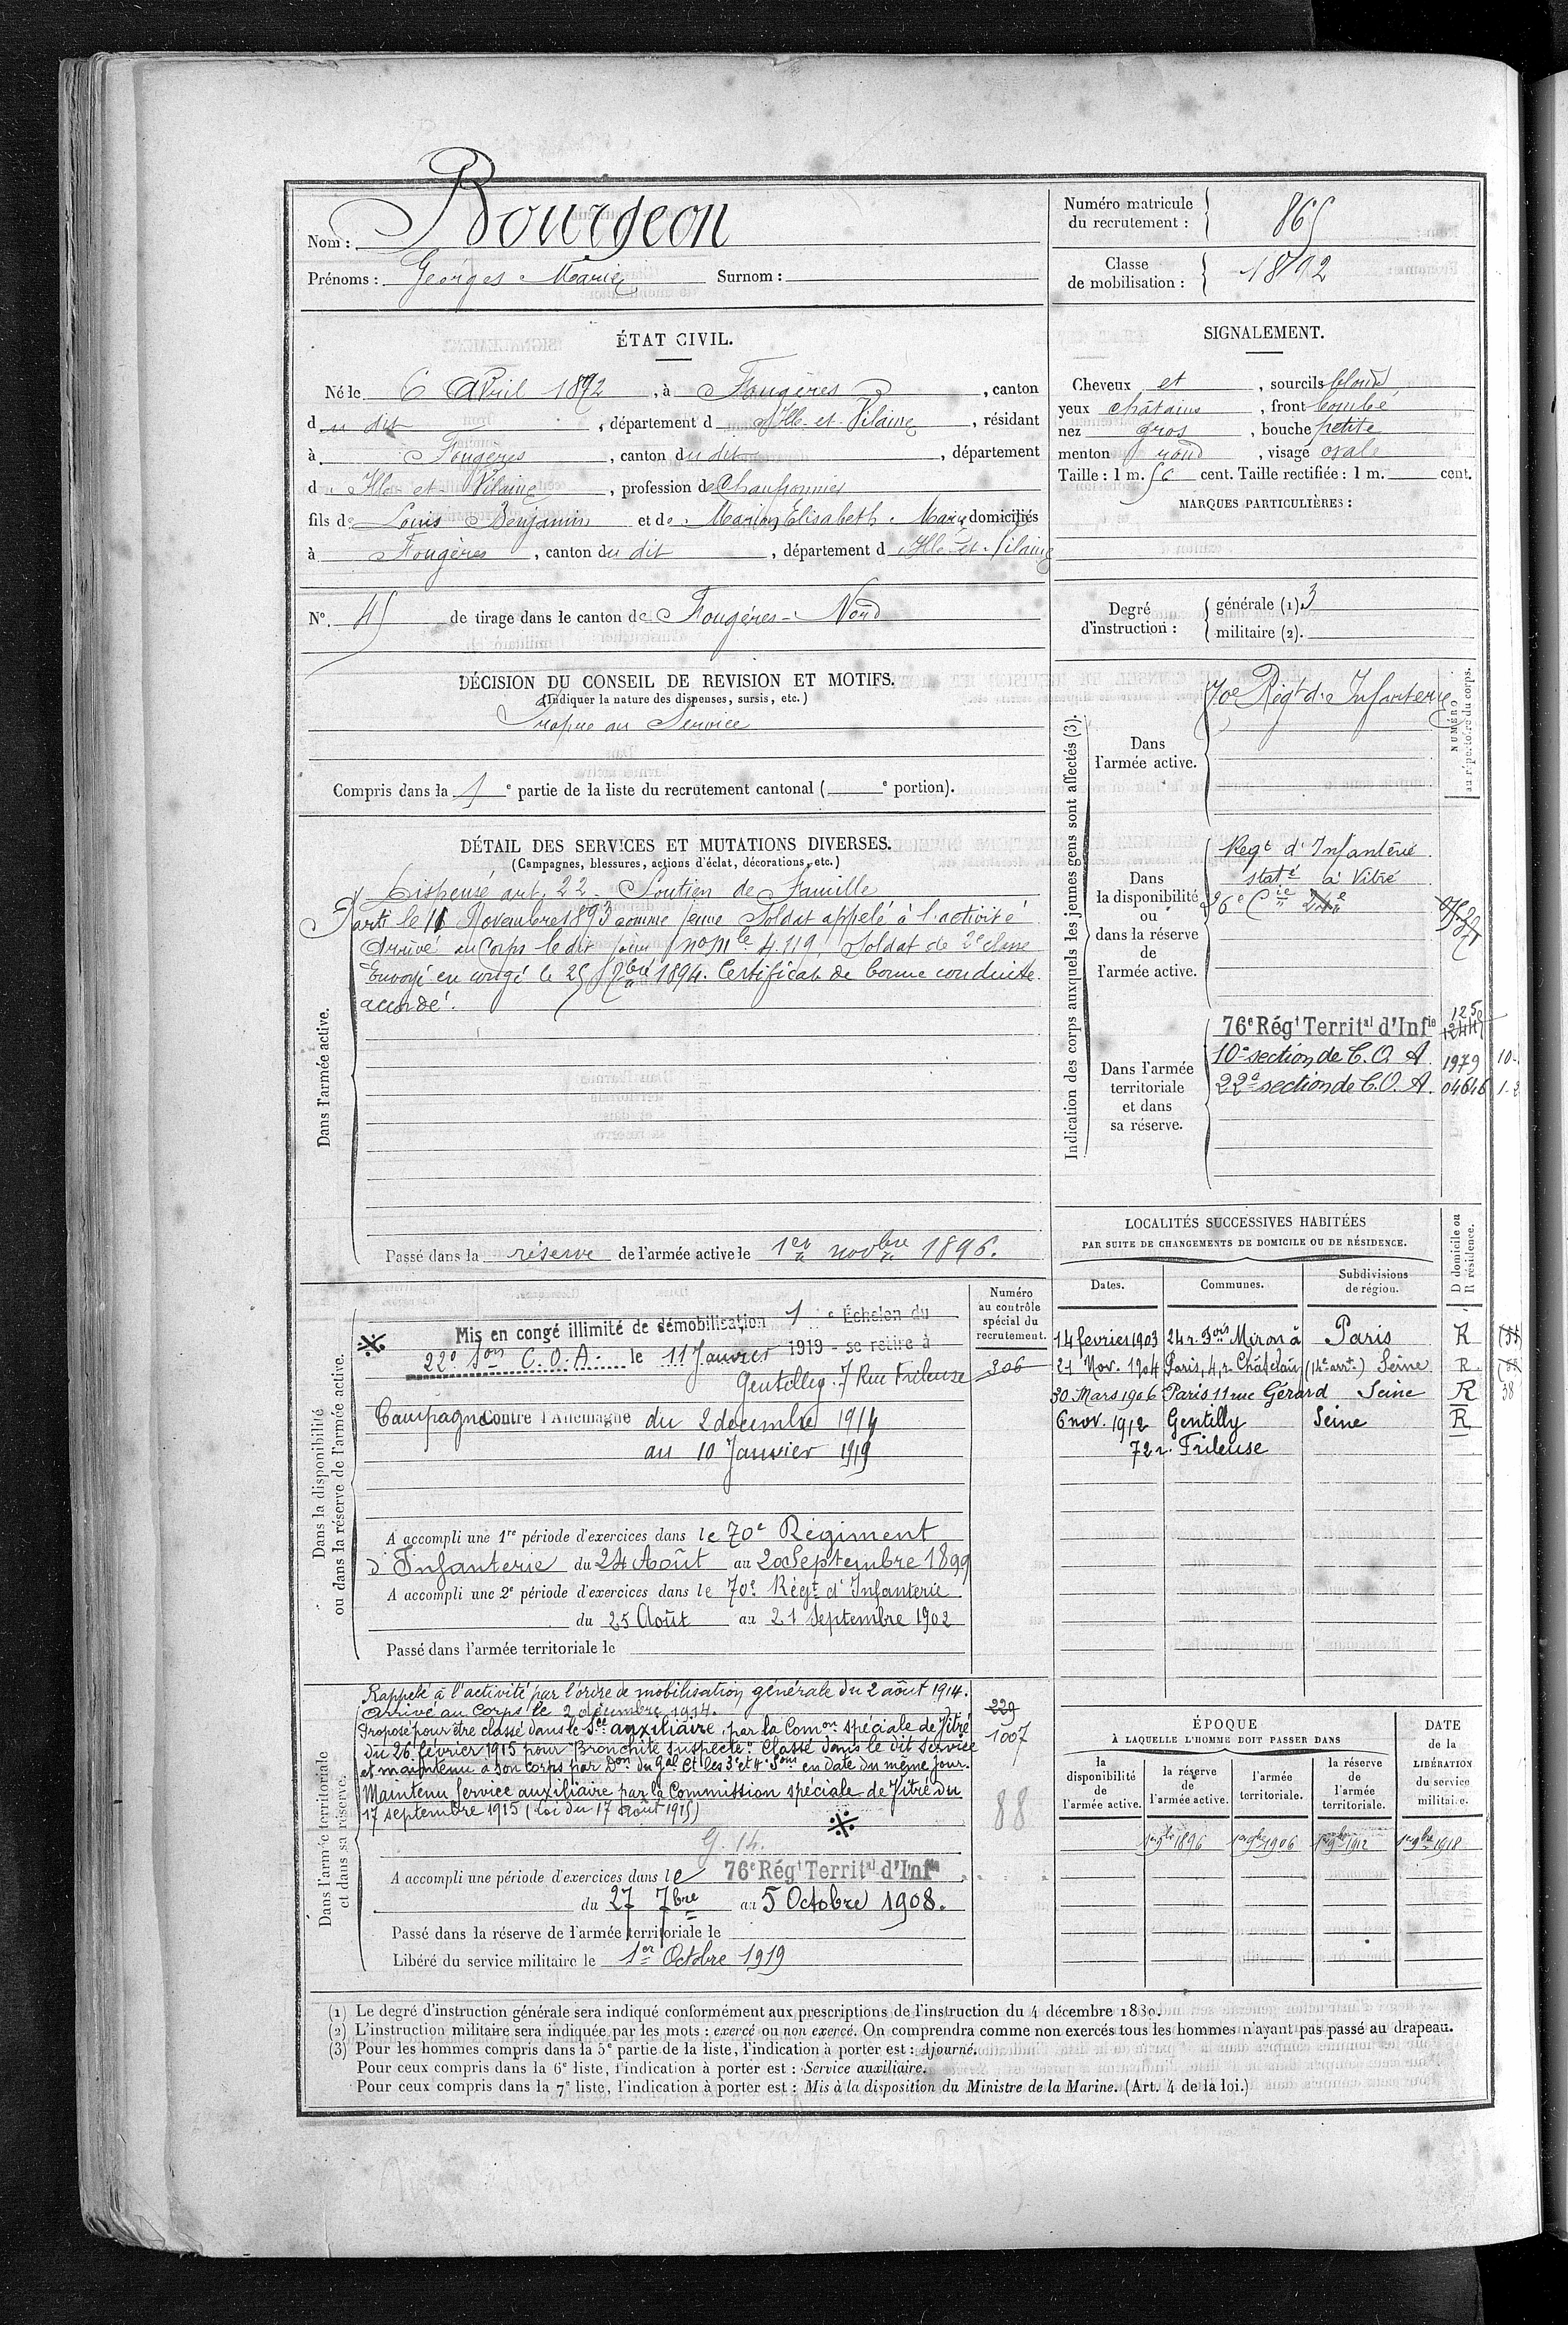 Nom : Bourgeon
Prénoms : Georges Marie Surnom :
Numéro matricule du recrutement : 865
Classe de mobilisation : 1892
ÉTAT CIVIL.
Né le 6 Avril 1872, à Fougères, canton
du dit, département d'Ille-et-Vilaine, résidant
à Fougères, canton du dit, département
d'Ille-et-Vilaine, profession de Chaussonnier
fils de Louis Benjamin et de Marion Elisabeth Marie domiciliés
à Fougères, canton du dit, département d'Ille-et-Vilaine
N° 45 de tirage dans le canton de Fougères-Nord
SIGNALEMENT.
Cheveux et, sourcils blond
yeux châtains, front bombé
nez gros, bouche petite
menton rond, visage ovale
Taille : 1 m. 56 cent. Taille rectifiée : 1 m. cent.
MARQUES PARTICULIÈRES :
Degré d'instruction : générale (1). 3
militaire (2).
DÉCISION DU CONSEIL DE REVISION ET MOTIFS.
(Indiquer la nature des dispenses, sursis, etc.)
Propre au Service
Compris dans la 1e partie de la liste du recrutement cantonal ( e portion).
DÉTAIL DES SERVICES ET MUTATIONS DIVERSES.
(Campagnes, blessures, actions d'éclat, décorations, etc.)
Dans l'armée active.
Dispensé art. 22 - Soutien de Famille
Parti le 11 Novembre 1893 comme jeune Soldat appelé à l'activité
Arrivé au Corps le dit jour no Mle 4.119, Soldat de 2e classe
Envoyé en congé le 25 7bre 1894. Certificat de bonne conduite
accordé.
Passé dans la réserve de l'armée active le 1er novbre 1896.
Indication des corps auxquels les jeunes gens sont affectés (3).
NUMÉRO au répertoire du corps.
Dans l'armée active.
70e Régt d'Infanterie
Dans la disponibilité ou dans la réserve de l'armée active.
Régt d'Infanterie
statné à Vitré
26e Cie
Dans l'armée territoriale et dans sa réserve.
76e Régt Territal d'Infie
10e section de C. O. A. 1979
22e section de C. O. A. 04646
LOCALITÉS SUCCESSIVES HABITÉES
PAR SUITE DE CHANGEMENTS DE DOMICILE OU DE RÉSIDENCE.
Dates. Communes. Subdivisions de région. D domicile ou R résidence.
14 fevrier 1903 24 r. Fois Miron à Paris R
21 Nov. 1904 Paris, 4, r. Châtelain (14e arrt.) Seine R.
30 Mars 1906 Paris 11 rue Gérard Seine R 38
6 nov. 1912 Gentilly Seine R
72 r. Frileuse
Dans la disponibilité ou dans la réserve de l'armée active.
Numéro au contrôle spécial du recrutement.
Mis en congé illimité de démobilisation 1e Échelon du
22e Son C.O.A. le 11 Janvier 1919 - se retire à
Gentilley. 7 Rue Frileuse
306
Campagne contre l'Allemagne du 2 decembre 1914
au 10 Janvier 1919
A accompli une 1re période d'exercices dans le 70e Régiment
d'Infanterie du 24 Août au 20 Septembre 1899
A accompli une 2e période d'exercices dans le 70e Régt d'Infanterie
du 25 Août au 21 Septembre 1902
Passé dans l'armée territoriale le
Dans l'armée territoriale et dans sa réserve.
Rappelé à l'activité par l'ordre de mobilisation générale du 2 août 1914.
Arrivé au Corps le 2 décembre 1914.
Proposé pour être classé dans le Sce auxiliaire par la Comon spéciale de Vitré
du 26 février 1915 pour "Bronchite suspecte". Classé dans le dit service
et maintenu à son corps par Don du Gal Ct les 3e et 4e Sons en date du même jour.
Maintenu Service auxiliaire par la Commission spéciale de Vitré du
17 septembre 1915 (loi du 17 août 1915)
229
1007
88
G. 14.
A accompli une période d'exercices dans le 76e Régt Territal d'Infie
du 27 7bre au 5 Octobre 1908.
Passé dans la réserve de l'armée territoriale le
Libéré du service militaire le 1er Octobre 1919
ÉPOQUE
À LAQUELLE L'HOMME DOIT PASSER DANS
la disponibilité de l'armée active.
la réserve de l'armée active.
l'armée territoriale.
la réserve de l'armée territoriale.
DATE de la LIBÉRATION du service militaire.
1er 9bre 1896 1er 9bre 1906 1er 9bre 1912 1er 9bre 1918
(1) Le degré d'instruction générale sera indiqué conformément aux prescriptions de l'instruction du 4 décembre 1889.
(2) L'instruction militaire sera indiquée par les mots : exercé ou non exercé. On comprendra comme non exercés tous les hommes n'ayant pas passé au drapeau.
(3) Pour les hommes compris dans la 5e partie de la liste, l'indication à porter est : Ajourné.
Pour ceux compris dans la 6e liste, l'indication à porter est : Service auxiliaire.
Pour ceux compris dans la 7e liste, l'indication à porter est : Mis à la disposition du Ministre de la Marine. (Art. 4 de la loi.)